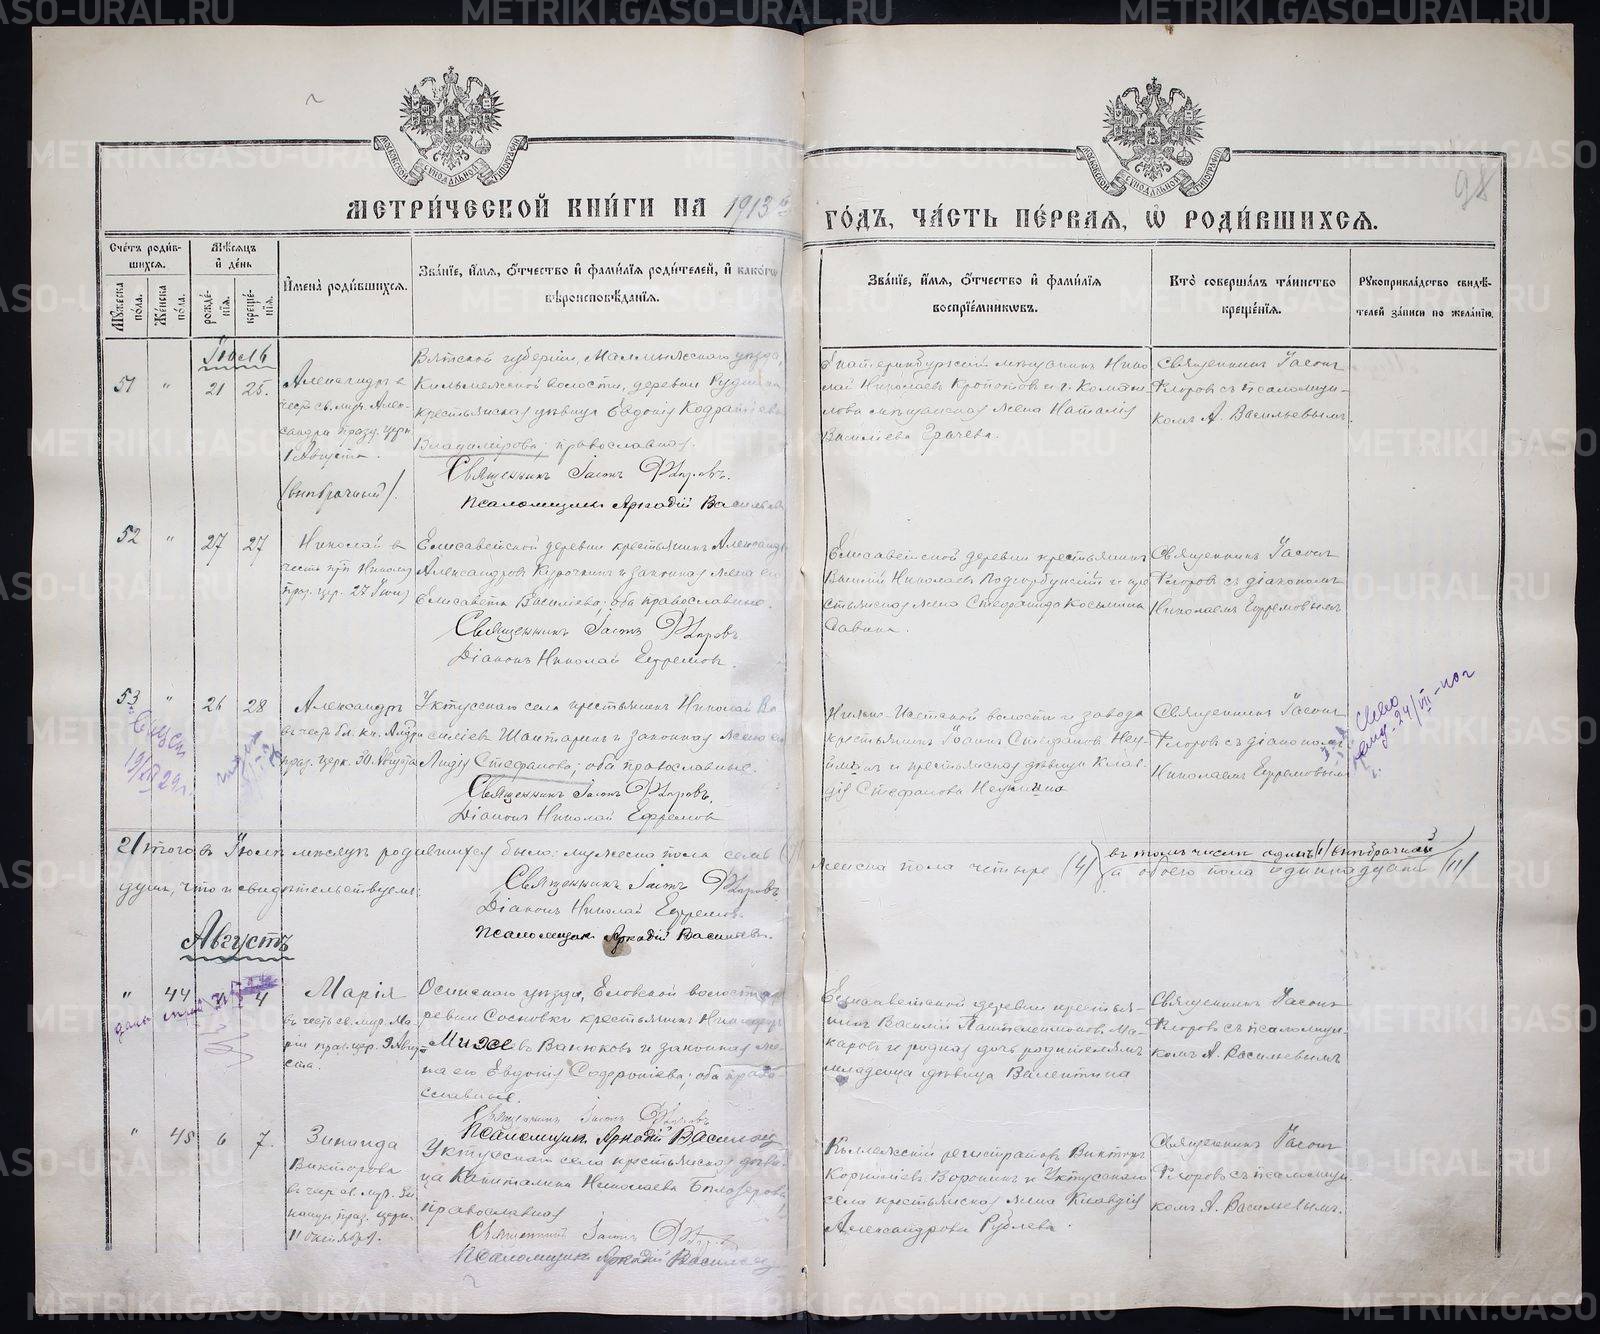 МЕТРИ́ЧЕСКОЙ КНИ́ГИ НА 1913 й
ГО́ДЪ, ЧА́СТЬ ПЕ́РВАЯ, Ѡ РОДИ́ВШИХСЯ.
98
Сче́тъ роди́вшихся.
Мꙋ́жеска по́ла.
Же́нска по́ла.
Мѣ́сяцъ и де́нь
рожде́нїя.
креще́нїя.
И҆мена̀ роди́вшихся.
Зва́нїе, и҆́мя, ѻ҆́тчество и҆ фами́лїя роди́телей, и҆ како́гѡ
вѣроисповѣ́данїя.
Зва́нїе, и҆́мя, ѻ҆́тчество и҆ фами́лїя
воспрїе́мникѡвъ.
Кто̀ соверша́лъ та́инство
креще́нїя.
Рꙋкоприкла́дство свидѣ́телей за́писи по жела́нїю.
Іюль
51 " 21 25.
Александръ въ
честь св. муч. Александра празд. церк.
1 Августа.
(внѣбрачный).
Вятской губерніи, Малмыжскаго уѣзда,
Кильмезской волости, деревни
крестьянская дѣвица Евдокія Кодратіева
Владимірова, православная.
Священникъ Іасонъ Флоровъ.
Псаломщикъ Аркадій Васильевъ
Екатеринбургскій мѣщанинъ Николай Николаевъ Кропотовъ и г. Камышлова мѣщанская жена Наталія
Василіева Грачева.
Священникъ Іасонъ
Флоровъ съ псаломщикомъ А. Васильевымъ.
52 " 27 27
Николай въ
честь прп. Николая
праз. цер. 27 Іюля
Елисаветской деревни крестьянинъ Александръ
Александровъ Курочкинъ и законная жена его
Елисавета Василіева, оба православные.
Священникъ Іасонъ Флоровъ
Діаконъ Николай Ефремовъ.
Елисаветской деревни крестьянинъ
Василій Николаевъ Подгорбунскій и крестьянская жена Стефанида Косьмина
Савина.
Священникъ Іасонъ
Флоровъ съ діакономъ
Николаемъ Ефремовымъ
53 " 26 28
Александръ
въ честь бл. кн. Алдра
праз. церк. 30 Августа
Уктусскаго села крестьянинъ Николай Василіевъ Шантаринъ и законная жена его
Лидія Стефанова, оба православные.
Священникъ Іасонъ Флоровъ.
Діаконъ Николай Ефремовъ
Нижне-Исетской волости и завода
крестьянинъ Іоаннъ Стефановъ Неуйминъ и крестьянская дѣвица Клавдія Стефанова Неуймина
Священникъ Іасонъ
Флоровъ съ діакономъ
Николаемъ Ефремовымъ
Итого въ Іюлѣ мѣсяцѣ родившихся было: мужеска пола семь (7)
женска пола четыре (4)
въ томъ числѣ одинъ (1) внѣбрачный
и обоего пола одиннадцать (11)
душъ, что и свидѣтельствуемъ:
Священникъ Іасонъ Флоровъ
Діаконъ Николай Ефремовъ.
Псаломщикъ Аркадій Васильевъ.
Августъ
" 44 4
Марія
въ честь св. мир. Маріи праз. цер. Августа.
Осинскаго уѣзда, Еловской волости, деревни Сосновки крестьянинъ
Ванюковъ и законная жена его Евдокія Софроніева, оба православные.
Священникъ Іасонъ Флоровъ
Псаломщикъ Аркадій Васильевъ
Елисаветской деревни крестьянинъ Василій Пантелеимоновъ Макаровъ и родная дочь родителямъ
младенца дѣвица Валентина
Священникъ Іасонъ
Флоровъ съ псаломщикомъ А. Васильевымъ
" 45 6 7.
Зинаида
Викторова
въ чест. св. муч. Зинаиды праз. церк.
11 октября.
Уктусскаго села крестьянская дѣвица Капиталина Николаева Бѣлозерова
православная
Священникъ Іасонъ Флоровъ
Псаломщикъ Аркадій Васильевъ
Коллежскій регистраторъ Викторъ
Корниліевъ Воронинъ и Уктусскаго
села крестьянская жена Клавдія
Александрова Рублева.
Священникъ Іасонъ
Флоровъ съ псаломщикомъ А. Васильевымъ.
METRIKI.GASO-URAL.RU